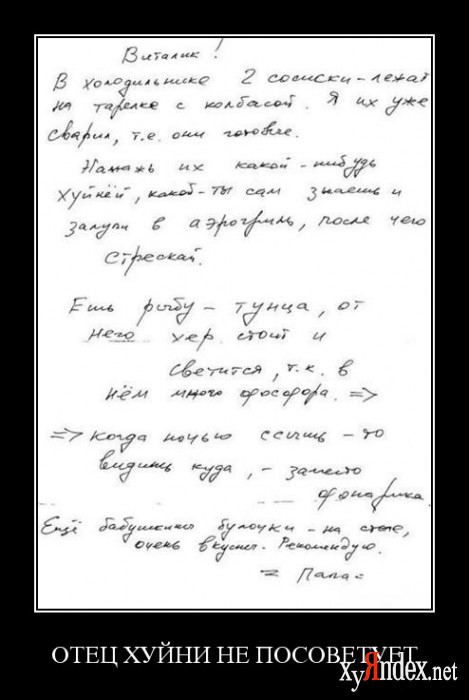 Виталик!
В холодильнике 2 сосиски - лежат
на тарелке с колбасой. Я их уже
сварил, т.е. они готовые.
Намажь их какой-нибудь
хуйнёй, какой - ты сам знаешь и
залупи в аэрогриль, после чего
стрескай.
Ешь рыбу - тунца, от
него хер стоит и
светится, т.к. в
нём много фосфора. =>
=> Когда ночью ссышь - то
видишь куда, - заместо
фонарика.
Ещё бабушкины булочки - на столе,
очень вкусные. Рекомендую.
= Папа =
ОТЕЦ ХУЙНИ НЕ ПОСОВЕТУЕТ
ХуЯndex.net